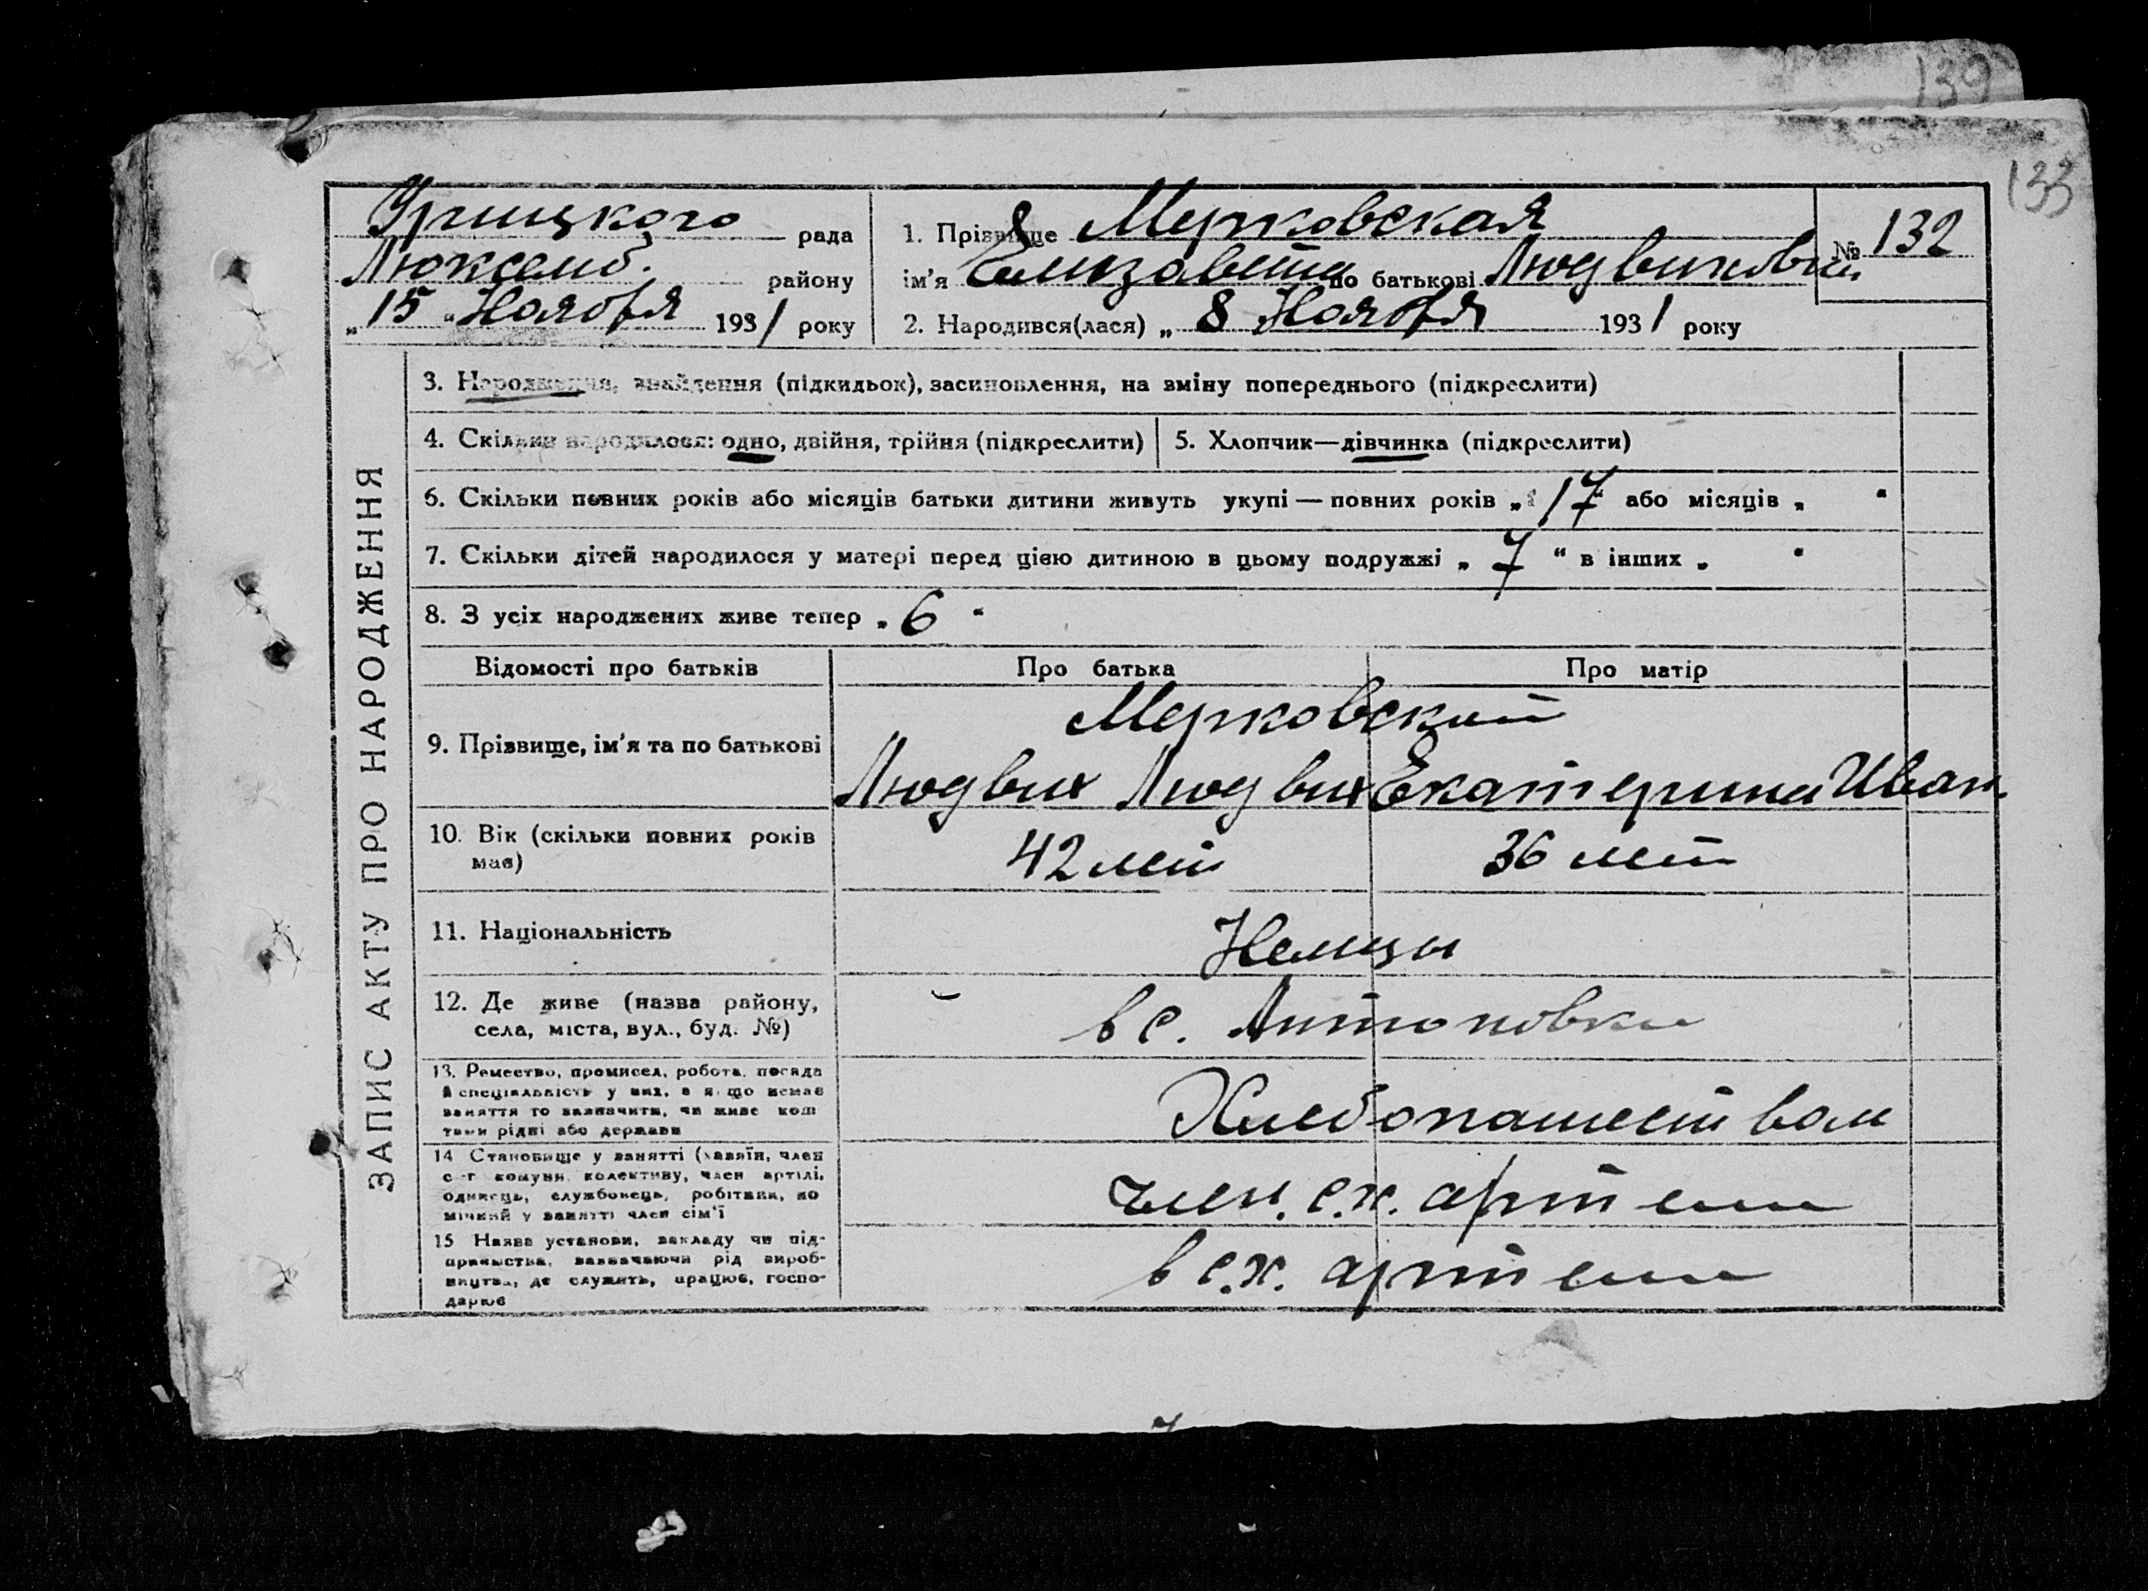 139
133
Урицкого рада
Люксемб. району
„15 " Ноября 1931 року
1. Прізвище Мерковская
ім'я Елизавета по батькові Людвиковна
№ 132
2. Народився(лася) „ 8 Ноября 1931 року
ЗАПИС АКТУ ПРО НАРОДЖЕННЯ
3. Народження, знайдення (підкидьок), засиновлення, на зміну попереднього (підкреслити)
4. Скільки народилося: одно, двійня, трійня (підкреслити)
5. Хлопчик—дівчинка (підкреслити)
6. Скільки повних років або місяців батьки дитини живуть укупі — повних років „ 17 “ або місяців „ “
7. Скільки дітей народилося у матері перед цією дитиною в цьому подружжі „ 7 “ в інших „ “
8. З усіх народжених живе тепер „ 6 “
Відомості про батьків Про батька Про матір
9. Прізвище, ім'я та по батькові
Мерковский
Людвих Людвих Екатерина Иван.
10. Вік (скільки повних років
має)
42 лет 36 лет
11. Національність
Немцы
12. Де живе (назва району,
села, міста, вул., буд. №)
в с. Антоновки
13. Ремество, промисел, робота, посада
й спеціяльність у них, а якщо немає
заняття то зазначити, чи живе кош
тами рідні або держави
Хлебопашеством
14 Становище у занятті (хазяїн, член
с-г комуни, колективу, член артілі,
одинець, службовець, робітник, по
мічний у занятті член сім'ї
член. с.х. артели
15 Назва установи, закладу чи під-
приємства, зазначаючи рід вироб-
ництва, де служить, працює, госпо-
дарює
в с.х. артели